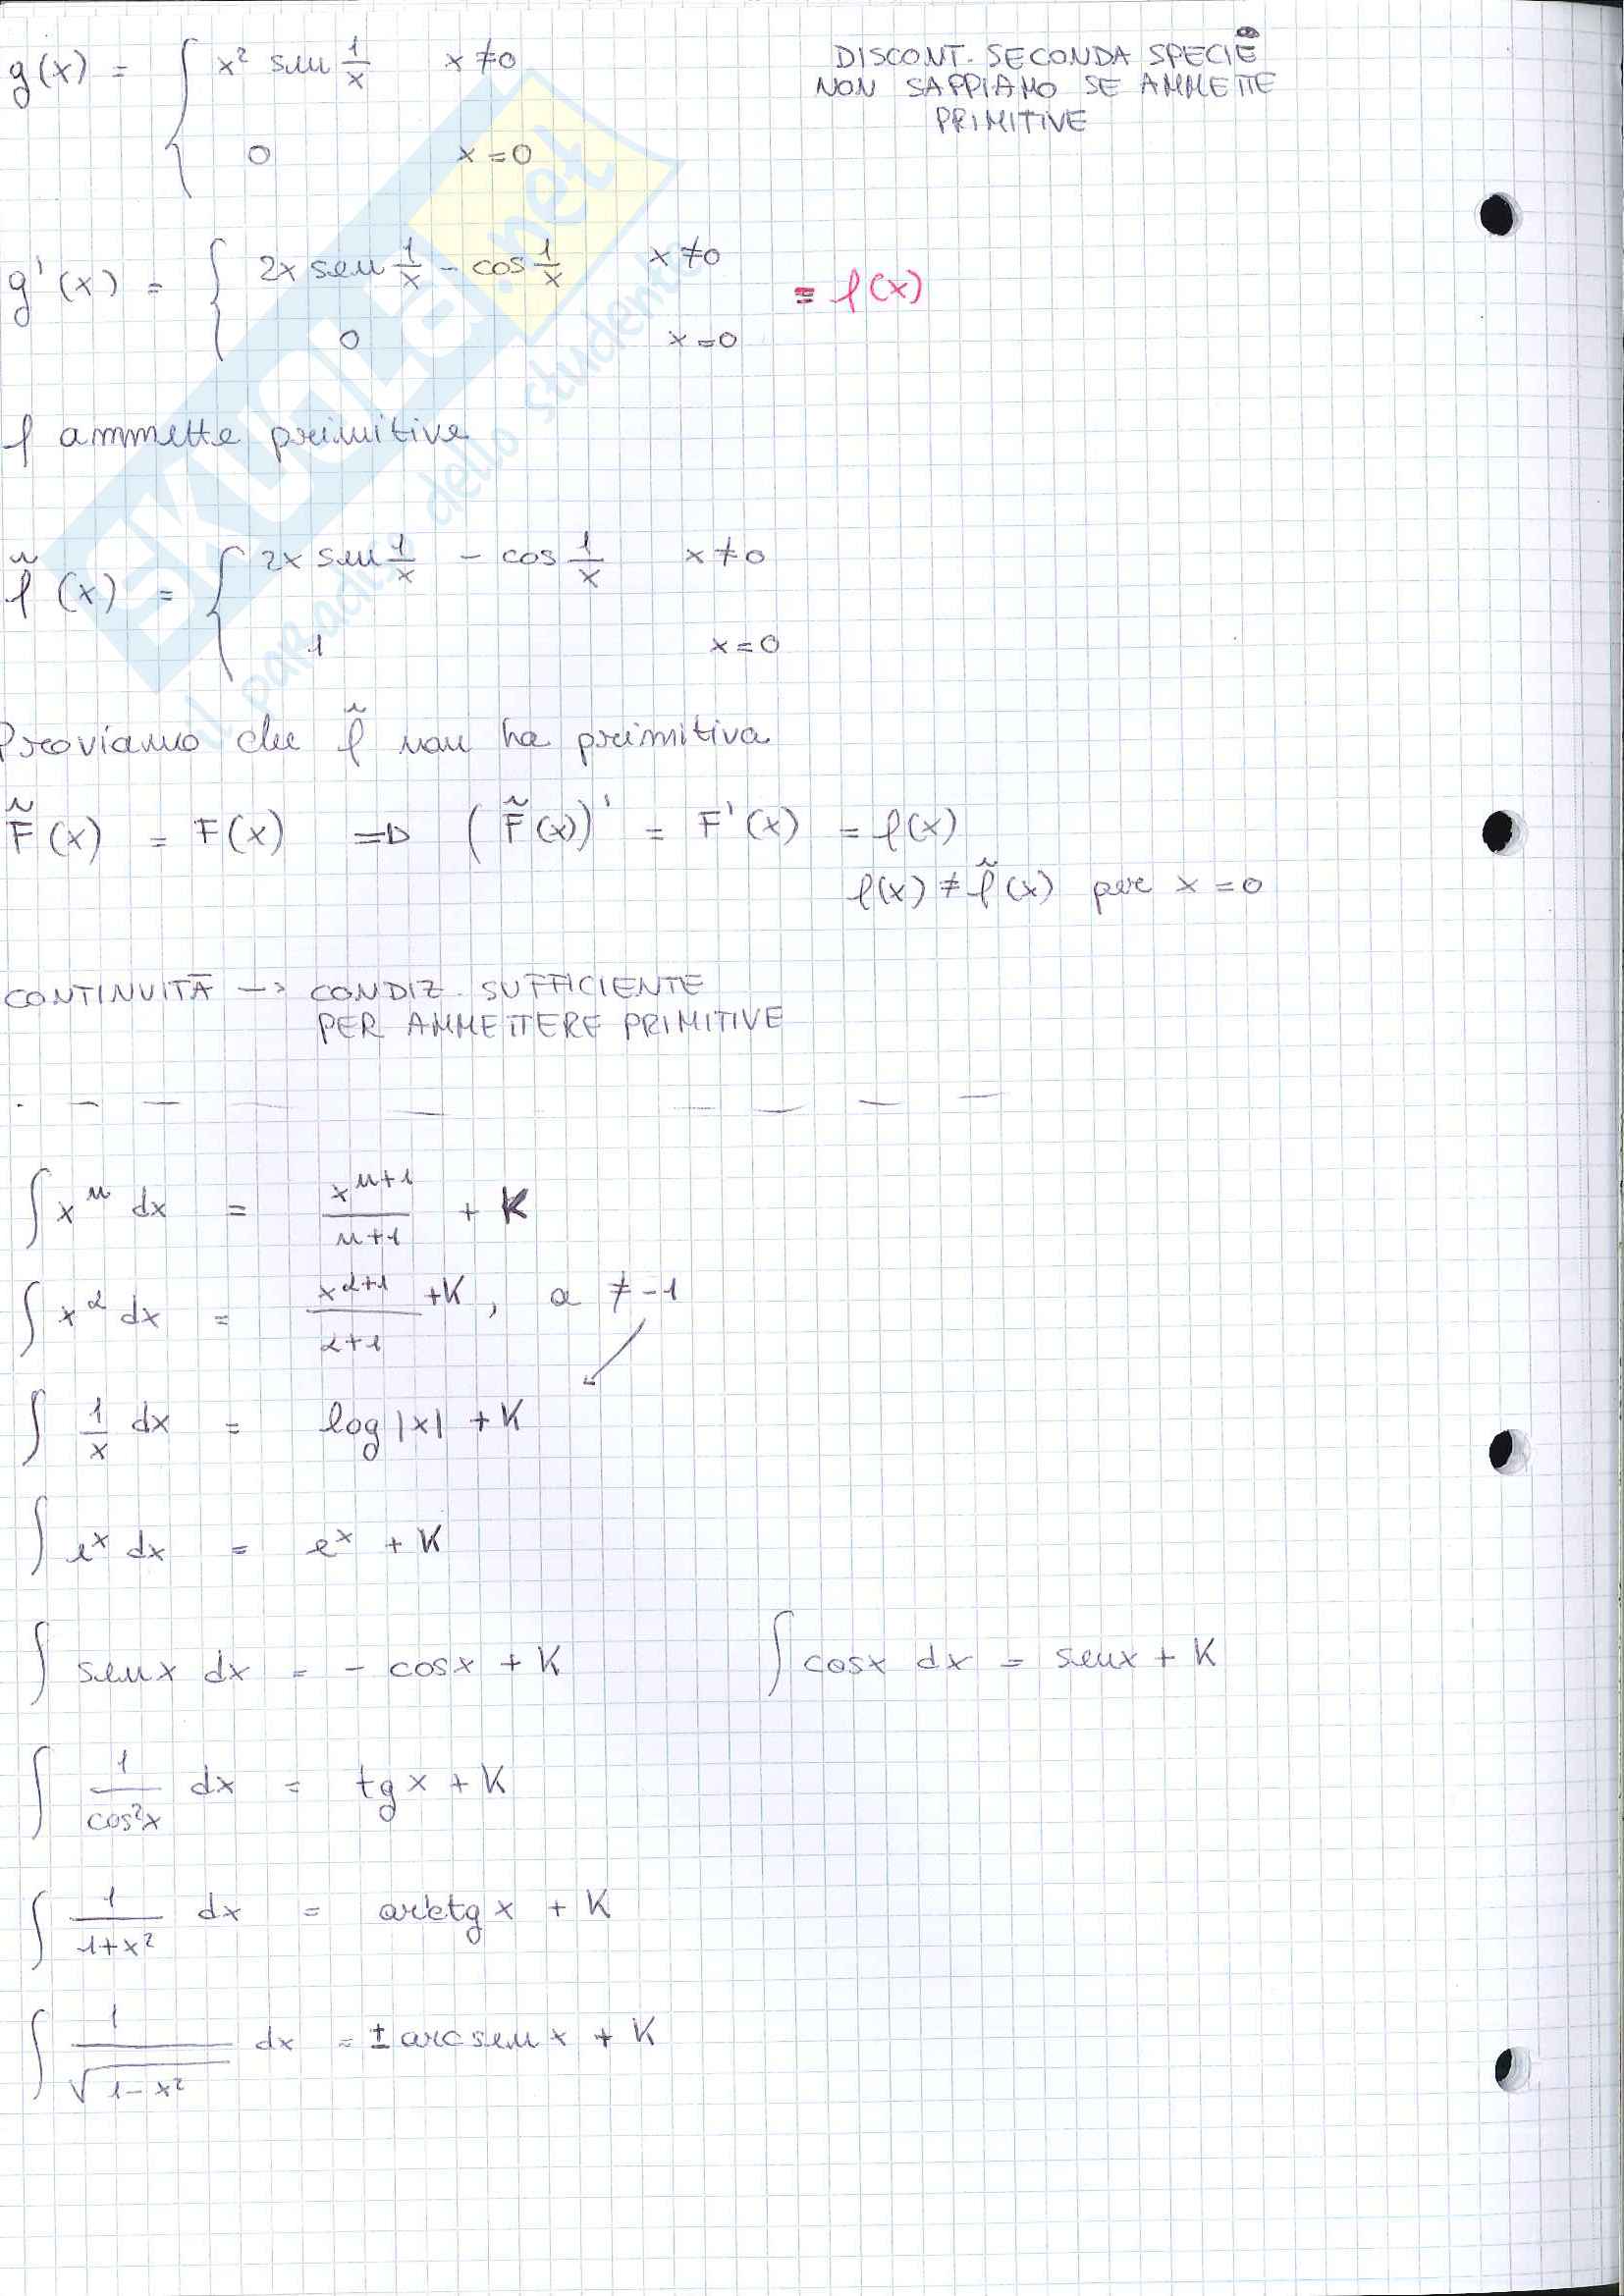 g(x) = { x² sen 1/x x ≠ 0
0 x = 0
DISCONT. SECONDA SPECIE
NON SAPPIAMO SE AMMETTE
PRIMITIVE
g'(x) = { 2x sen 1/x - cos 1/x x ≠ 0
0 x = 0
= f(x)
f ammette primitive
f̃(x) = { 2x sen 1/x - cos 1/x x ≠ 0
1 x = 0
Proviamo che f̃ non ha primitiva
F̃(x) = F(x) => (F̃(x))' = F'(x) = f(x)
f(x) ≠ f̃(x) per x = 0
CONTINUITÀ -> CONDIZ. SUFFICIENTE
PER AMMETTERE PRIMITIVE
∫ xⁿ dx = xⁿ⁺¹/n+1 + K
∫ x^α dx = x^(α+1)/α+1 + K , a ≠ -1
∫ 1/x dx = log|x| + K
∫ eˣ dx = eˣ + K
∫ senx dx = - cosx + K ∫ cosx dx = senx + K
∫ 1/cos²x dx = tgx + K
∫ 1/1+x² dx = arctgx + K
∫ 1/√1-x² dx = ± arcsenx + K
SKUOLA.net
il paradiso dello studente